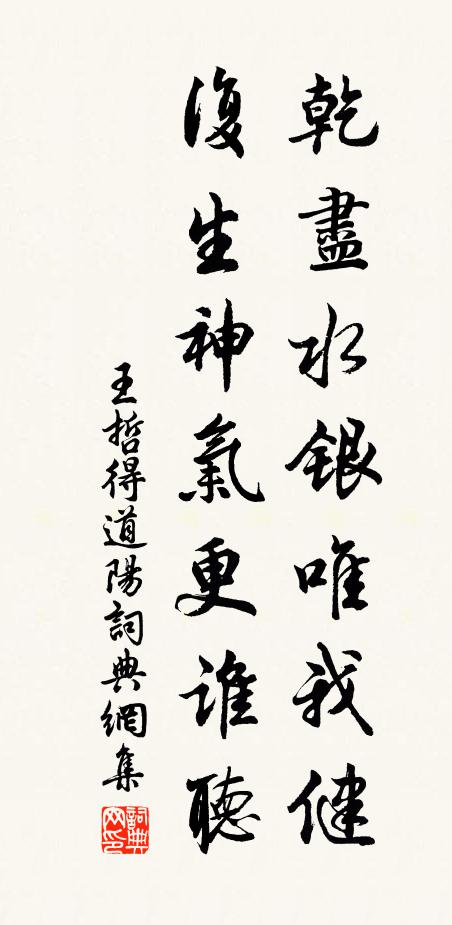 乾盡水銀唯我健
復生神氣更誰聽
王哲得道陽詞典網集
詞典网印